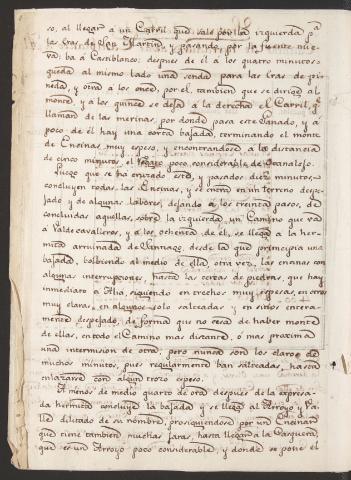 so, al llegar á un Carril que sale por la izquierda p.ª
las Eras de San Martin, y pasando por la fuente nue-
va; ba á Castiblanco: despues de él a los quatro minutos
queda al mismo lado una senda para las Eras de pi-
neda, y otra á los once, por él, tambien que se dirige al
monte, y á los quince se deja á la derecha el Carril, q.e
llaman de las merinas, por donde pasa este Ganado, y á
poco de él hay una corta bajada, terminando el monte
de Encinas muy espeso, y encontrandose á la distancia
de cinco minutos, el poco considerable de Guanalejo.
Luego que se ha cruzado este, y pasados diez minutos,
concluyen todas las Encinas, y se entra en un terreno despe-
jado y de algunas labores, dejando á los treinta pasos, de
concluidas aquellas, sobre la izquierda, un Camino que va
á Valdecavalleros, y á los ochenta de él, se llega á la her-
mita arruinada de desde la que principia una
bajada, bolbiendo al medio de ella otra vez, las encinas con
algunas interrupciones, hasta las cercas de piedras, que hay
inmediato á Alia, siguiendo en trechos muy espesas, en otros
muy claras, en algunos solo salteadas y en sitios entera-
mente despejado, de forma que no cesa de haber monte
de ellas, en todo el Camino mas distante, ó mas proxima
una intermision de otra; pero nunca son los claros de
muchos minutos, pues regularmente ban salteadas, hasta
enlazarse con algun trozo espeso.
A menos de medio quarto de ora despues de la expresa-
da hermita concluye la bajada y se llega al Arroyo y Va-
lle dilatado de su nombre, prosiguiendose por un Encinar
que tiene tambien muchas Jaras, hasta llegar á la
que es un Arroyo poco considerable, y donde se pone el